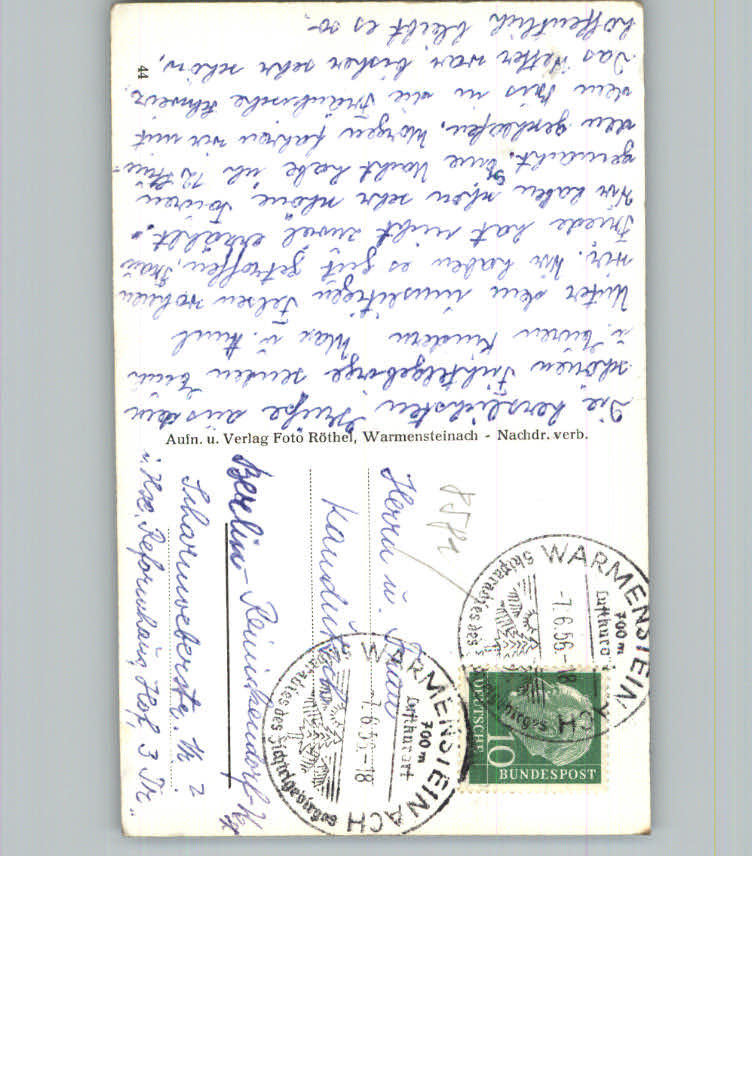 Die herzlichsten Grüße aus dem
schönen Fichtelgebirge senden Euch
u. Euren Kindern Max u.
Unter dem Felsen wohnen
wir. Wir haben es gut getroffen, Frau
Friede hat nicht zuviel erzählt.
Wir haben schon sehr schöne Touren
gemacht. Eine Nacht habe ich 12 Stun-
den geschlafen. Morgen fahren wir mit
dem Bus in die Fränkische Schweiz.
Das Wetter war bisher sehr schön,
hoffentlich bleibt es so.
44
Aufn. u. Verlag Foto Röthel, Warmensteinach - Nachdr. verb.
Herrn u. Frau
Berlin-Reinickendorf-
Scharnweberstr. 2
Reformhaus, Hof, 3 Tr.
8581
WARMENSTEINACH
700 m
Luftkurort
-7.6.56.-18
Skiparadies des Fichtelgebirges
WARMENSTEINACH
700 m
Luftkurort
-7.6.56.-18
Skiparadies des Fichtelgebirges
DEUTSCHE
BUNDESPOST
10